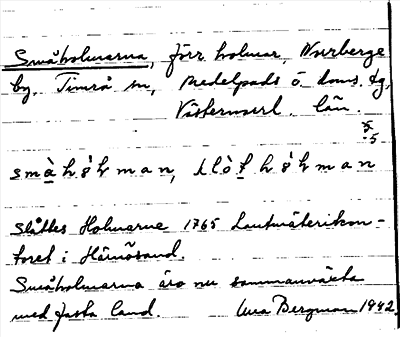 Småholmarna, förr holmar, Norrberge
by, Timrå sn, Medelpads ö. doms. tg,
Västernorrl. län.
Slåttes Holmarne 1765 Lantmäterikon-
toret i Härnösand.
Småholmarna äro nu sammanväxta
med fasta land. Bergman 1942.